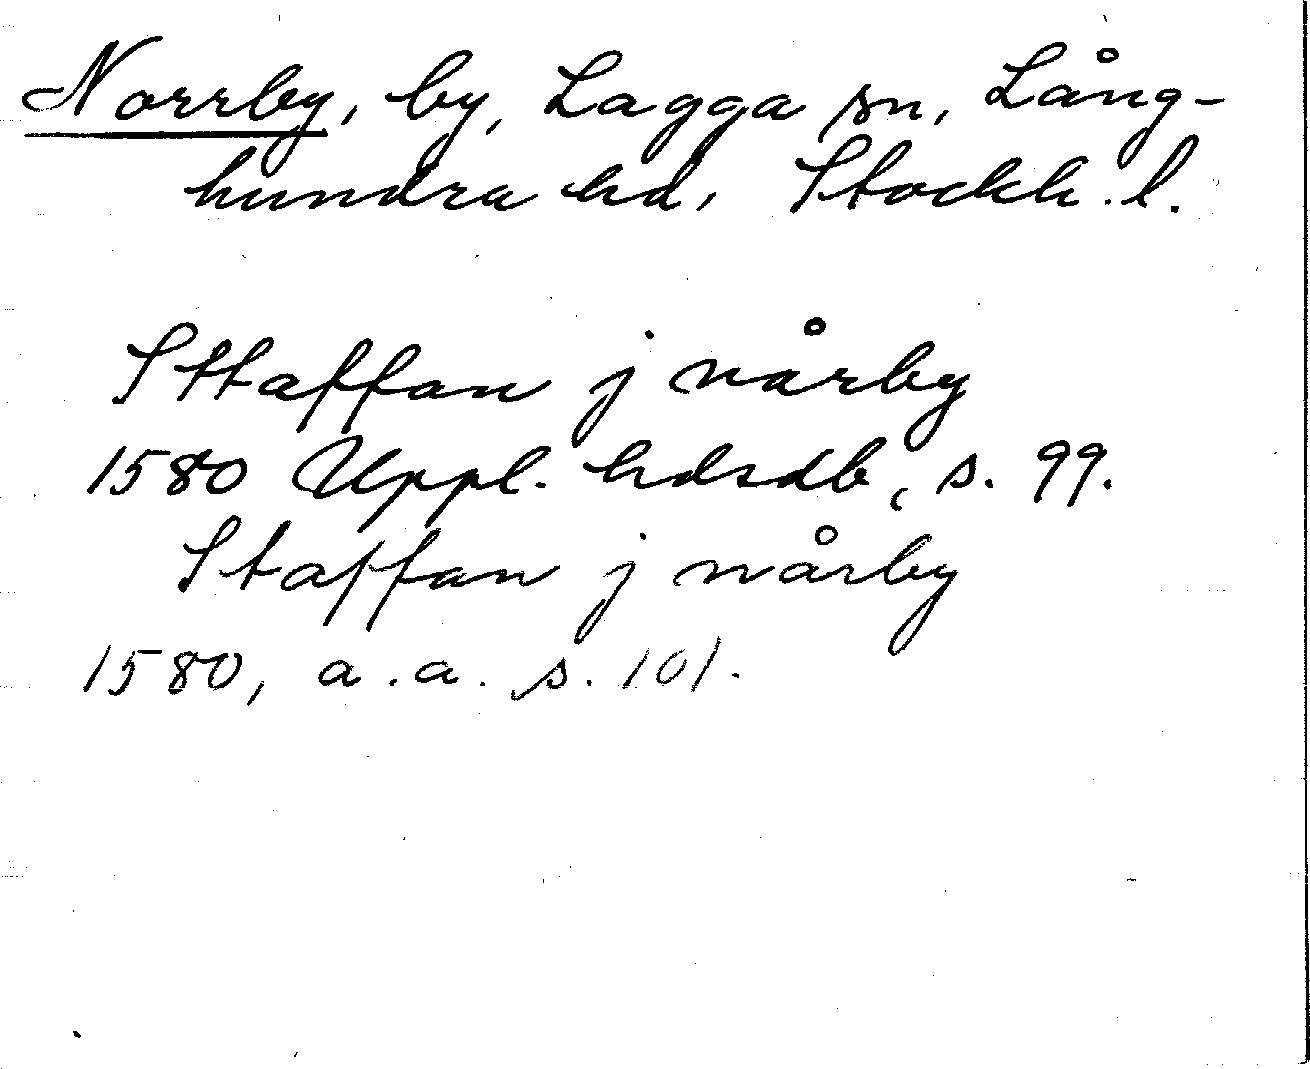 Norrby, by, Lagga sn, Lång-
hundra hd, Stockh. l.
Sttaffan j nårby
1580 Uppl. hdsdb, s. 99.
Staffan j nårby
1580, a.a. s. 101.